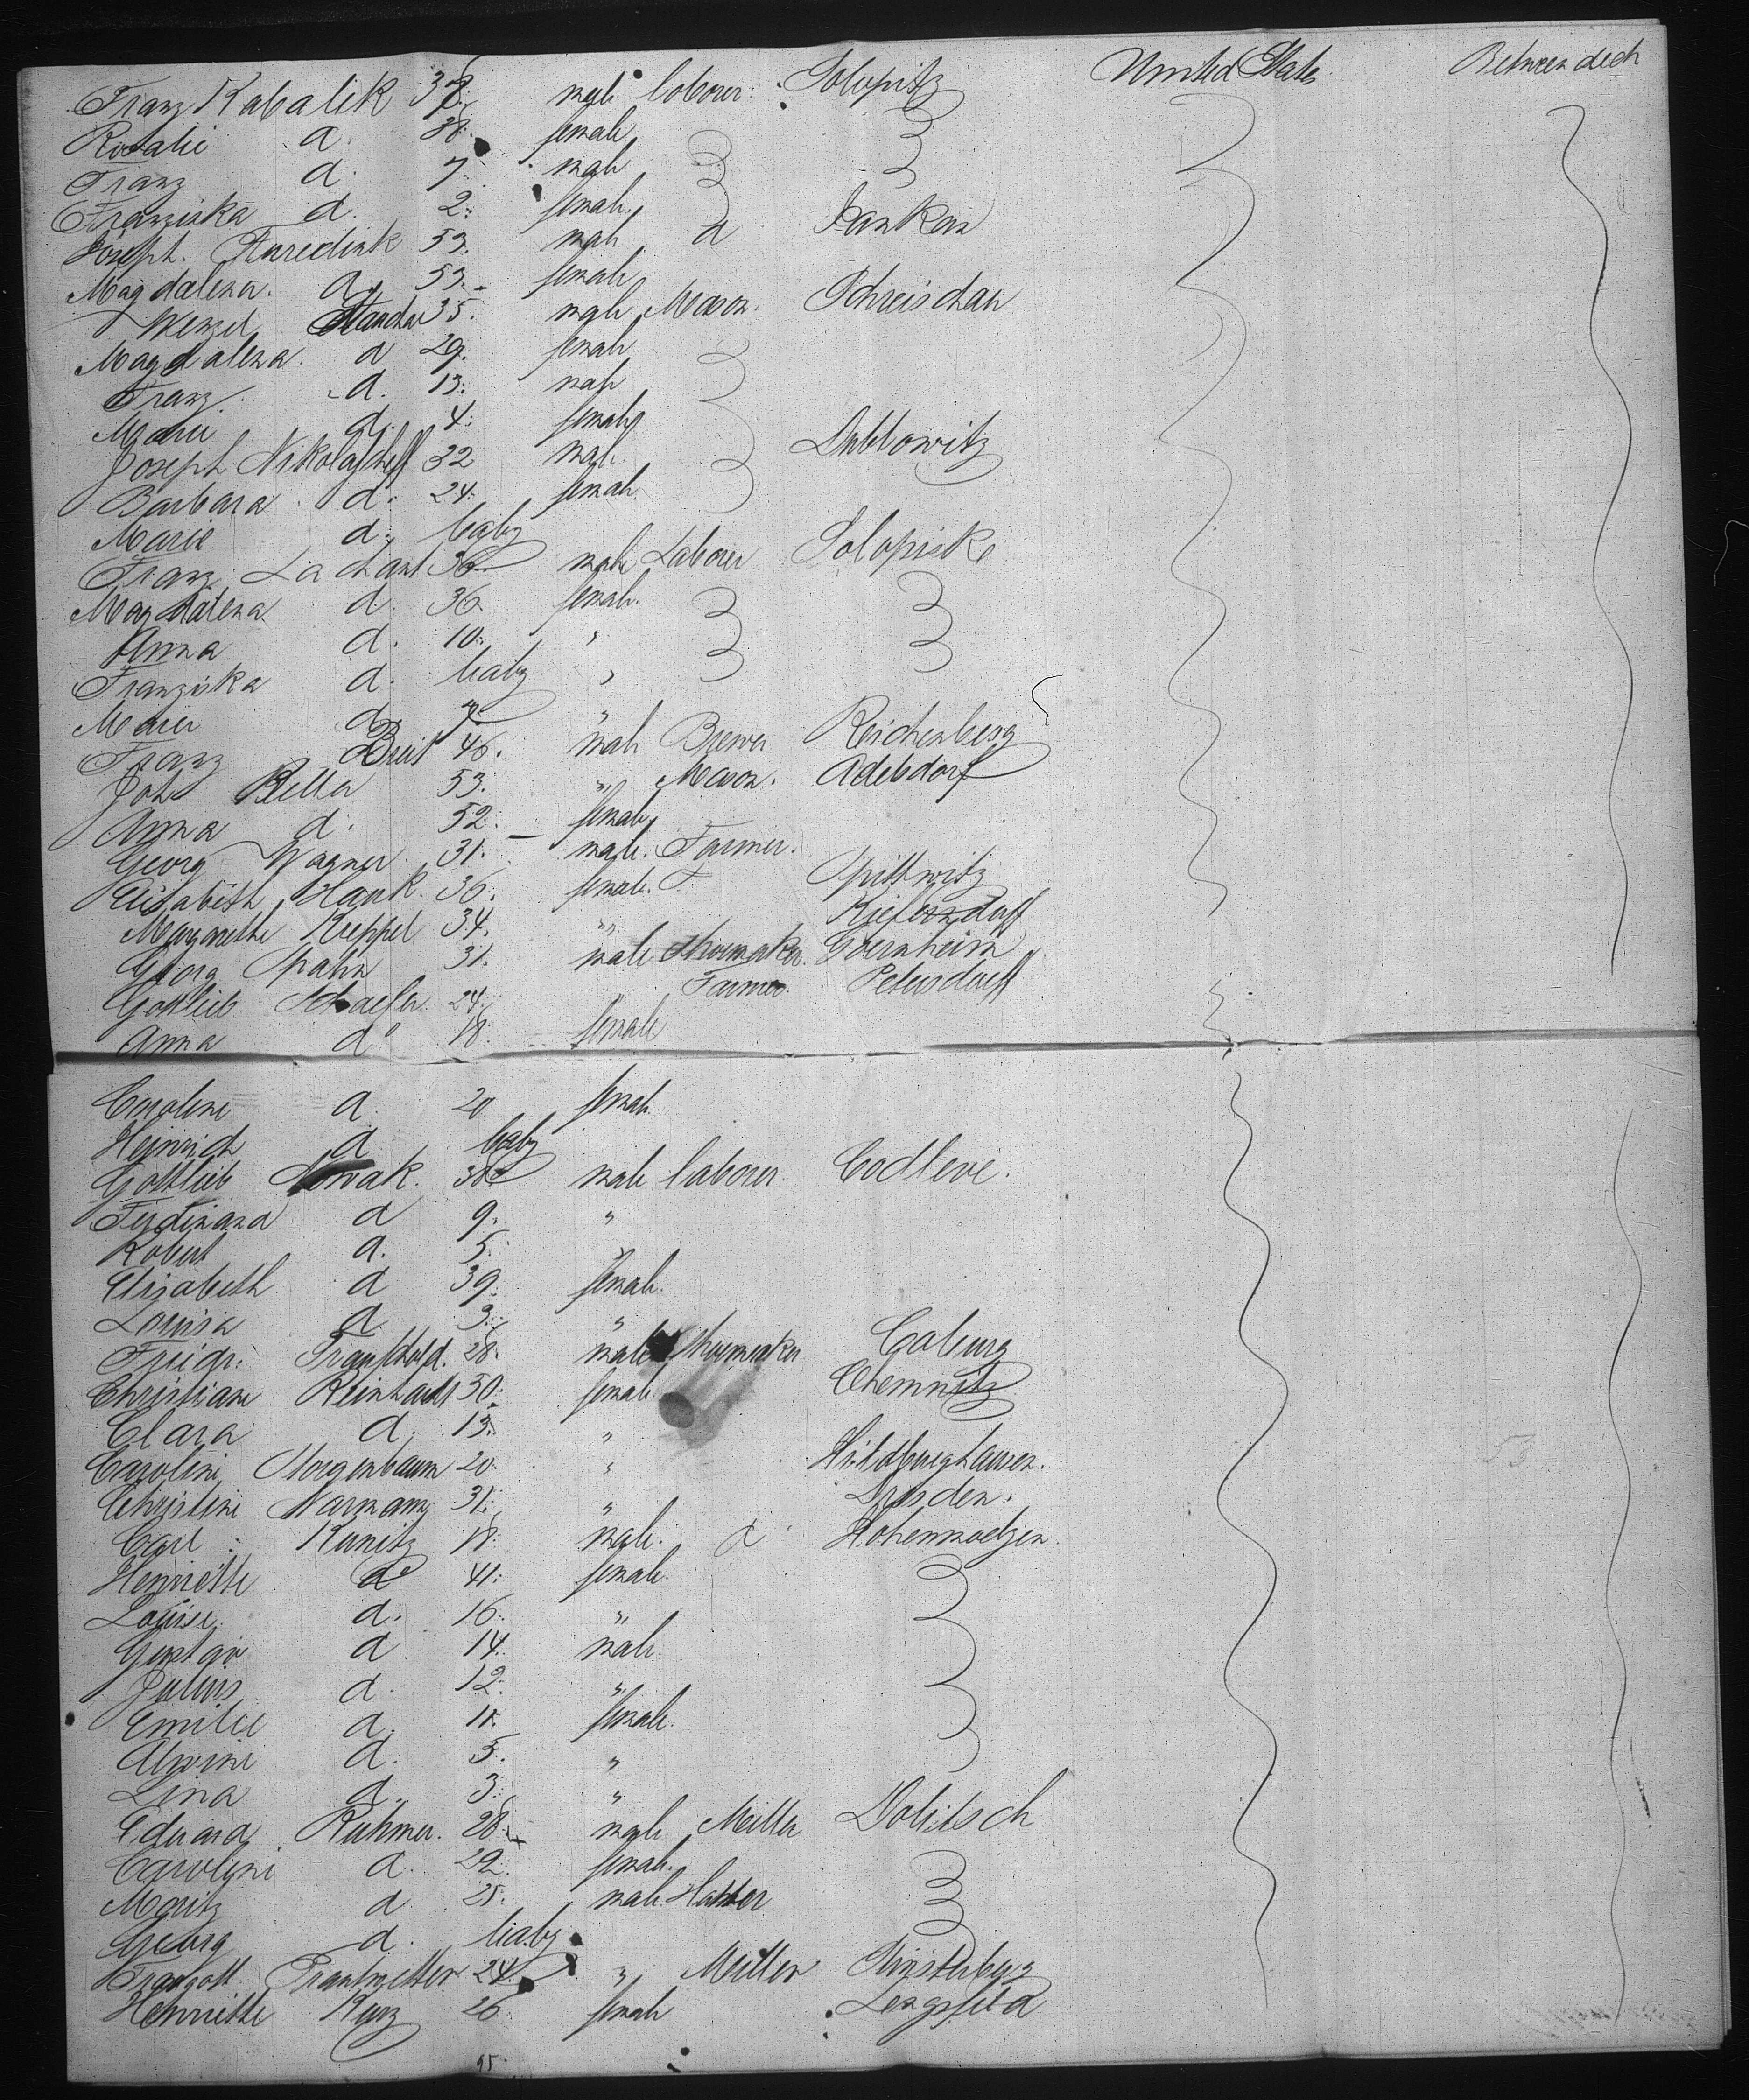 Franz Kabalik 38. male labourer. Solopitz United States Between deck
Rosalie d. 38. female
Franz d. 7. male
Franziska d. 2. female.
Joseph. 53. male d Jankau
Magdalena. d. 53. female
Wenzel 35. male Mason. Schreischan
Magdalena. d 29. female
Franz. d. 13. male
Marie d. 4. female
Joseph 32 male. Dublowitz
Barbara d. 24. female.
Marie d. baby
Franz Lachant 36 male Labourer Solopiske
Magdalena d. 36. female.
Anna d. 10. "
Franziska d. baby "
Marie d. 7. "
Franz Breit 46. male Brewer Reichenberg
Joh Bella 53. " Mason. Adelsdorf
Anna d. 52. female
Georg Wagner 31. male. Farmer.
Elisabeth Hank. 36. female. F. Spittwitz
Margarethe Keppel 34. "
Georg Spahn 31. male Shoemaker. Goernheim
Gottlieb Schaefer. 24. " Farmer. Petersdorff
Anna do 18. female
Caroline d. 20 female.
Heinrich d baby
Gottlieb Nowak. 38 male labourer. Codleve.
Ferdinand d 9. "
Robert d. 5. "
Elizabeth d 39. female.
Louisa d. 3. "
Friedr. 28. male Shoemaker Coburg
Christiane Reinhardt 50. female Chemnitz
Clara d. 13. "
Caroline Morgenbaum 20. " Hildburghausen.
Christine 31. " Dresden.
Carl Kunitz 18. male. d
Henriette do 41. female.
Louise. d. 16. "
Gustav d 14. male
Julius d. 12. "
Emilie d. 11. female.
Alwine d. 5. "
Lina d. 3. "
Eduard Kuhmer. 28. male Miller Dobitsch
Caroline d. 29. female.
Moritz d 25. male. Hatter
Georg d. baby
Traugott Trautvetter 24. " Miller
Henriette Kurz 26. female Lengsfeld
95.